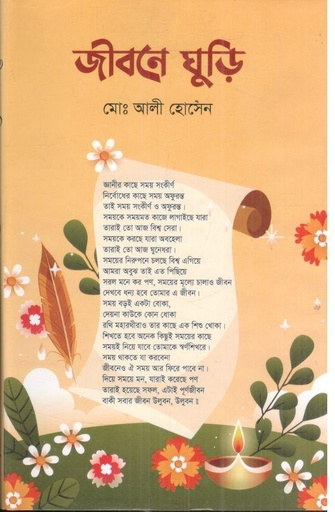 জীবনে ঘুড়ি
মোঃ আলী হোসেন
জ্ঞানীর কাছে সময় সংকীর্ণ
নির্বোধের কাছে সময় অফুরন্ত
তাই সময় সংকীর্ণ ও অফুরন্ত।
সময়কে সময়মত কাজে লাগাইছে যারা
তারাই তো আজ বিশ্ব সেরা।
সময়কে করছে যারা অবহেলা
তারাই তো আজ ঘুনেধরা।
সময়ের নিরুপনে চলছে বিশ্ব এগিয়ে
আমরা অবুঝ তাই এত পিছিয়ে
সরল মনে কর পণ, সময়ের মূল্যে চালাও জীবন
দেখবে ধন্য হবে তোমার এ জীবন।
সময় বড়ই একটা বোকা,
দেয়না কাউকে কোন ধোকা
রথি মহারথীরাও তার কাছে এক শিশু খোকা।
শিখতে হবে অনেক কিছুই সময়ের কাছে
সময়ই নিয়ে যাবে তোমাকে স্বর্ণশিখরে।
সময় থাকতে যা করবেনা
জীবনেও ঐ সময় আর ফিরে পাবে না।
দিয়ে সময়ে মন, যারাই করেছে পণ
তারাই হয়েছে সফল, এটাই পূর্ণজীবন
বাকী সবার জীবন উলুবন, উলুবন ঃ